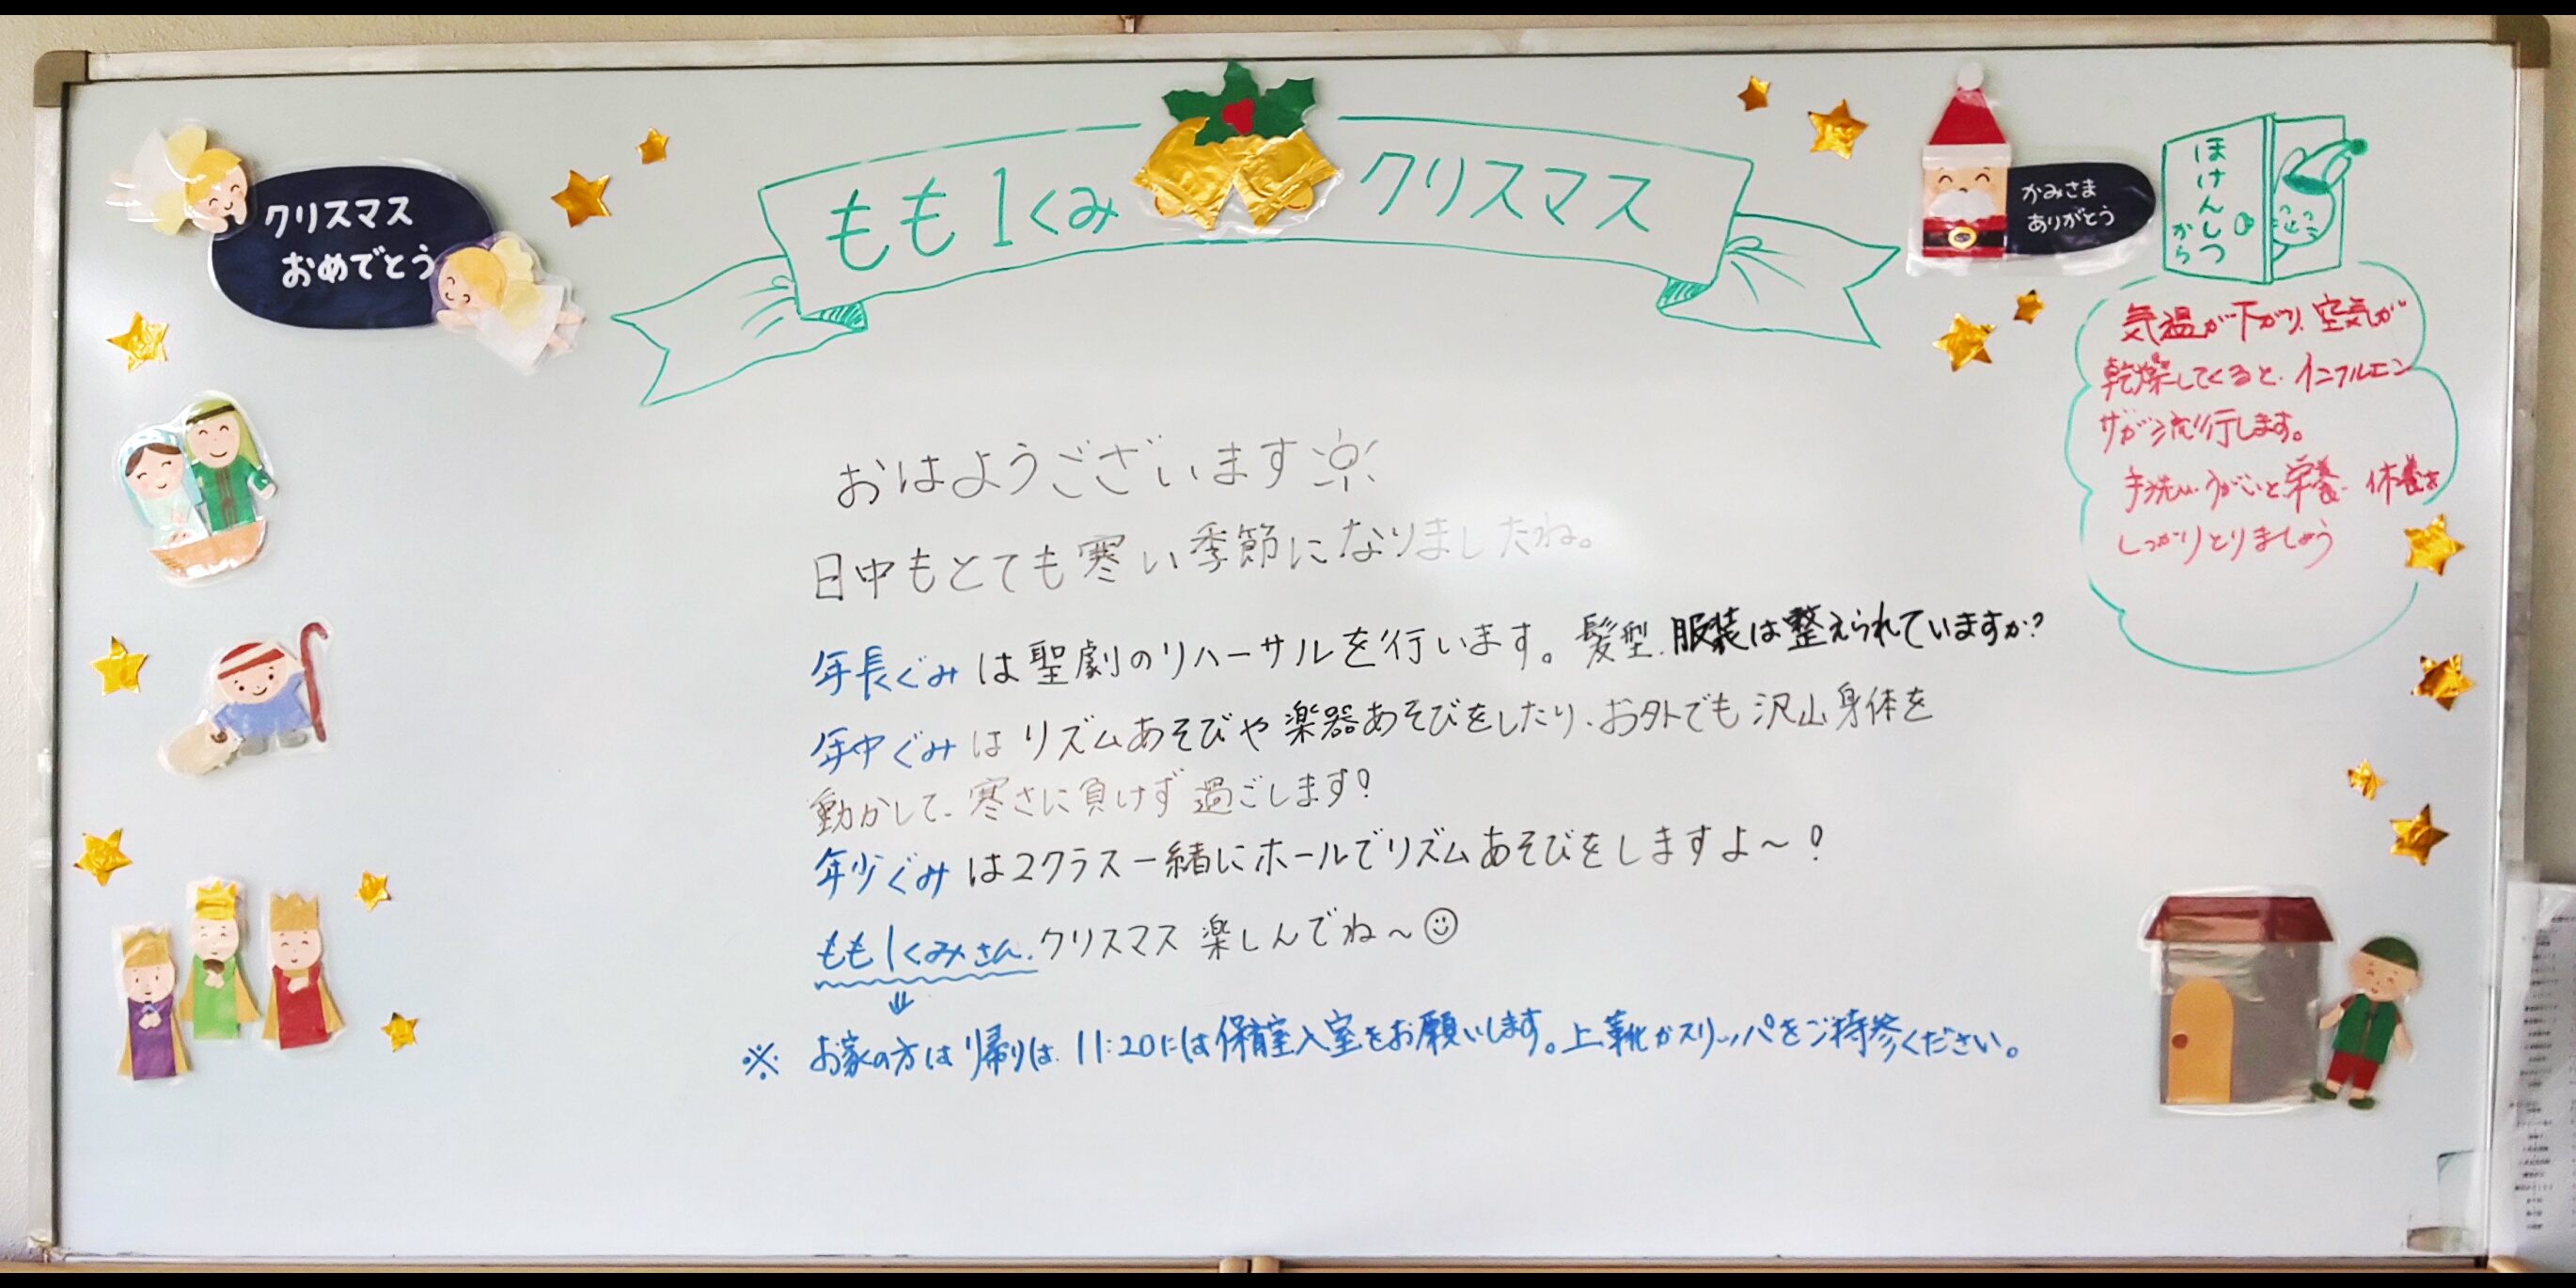 クリスマス
おめでとう
もも1くみ クリスマス
かみさま
ありがとう
ほけんしつ
から
気温が下がり、空気が
乾燥してくると、インフルエン
ザが流行します。
手洗い、うがいと栄養、休養を
しっかりとりましょう
おはようございます
日中もとても寒い季節になりましたね。
年長ぐみは聖劇のリハーサルを行います。髪型、服装は整えられていますか?
年中ぐみはリズムあそびや楽器あそびをしたり、お外でも沢山身体を
動かして、寒さに負けず過ごします!
年少ぐみは2クラス一緒にホールでリズムあそびをしますよ~!
もも1くみさん、クリスマス楽しんでね~☺
⇓
※ お家の方は帰りは、11:20には保育室入室をお願いします。上靴かスリッパをご持参ください。